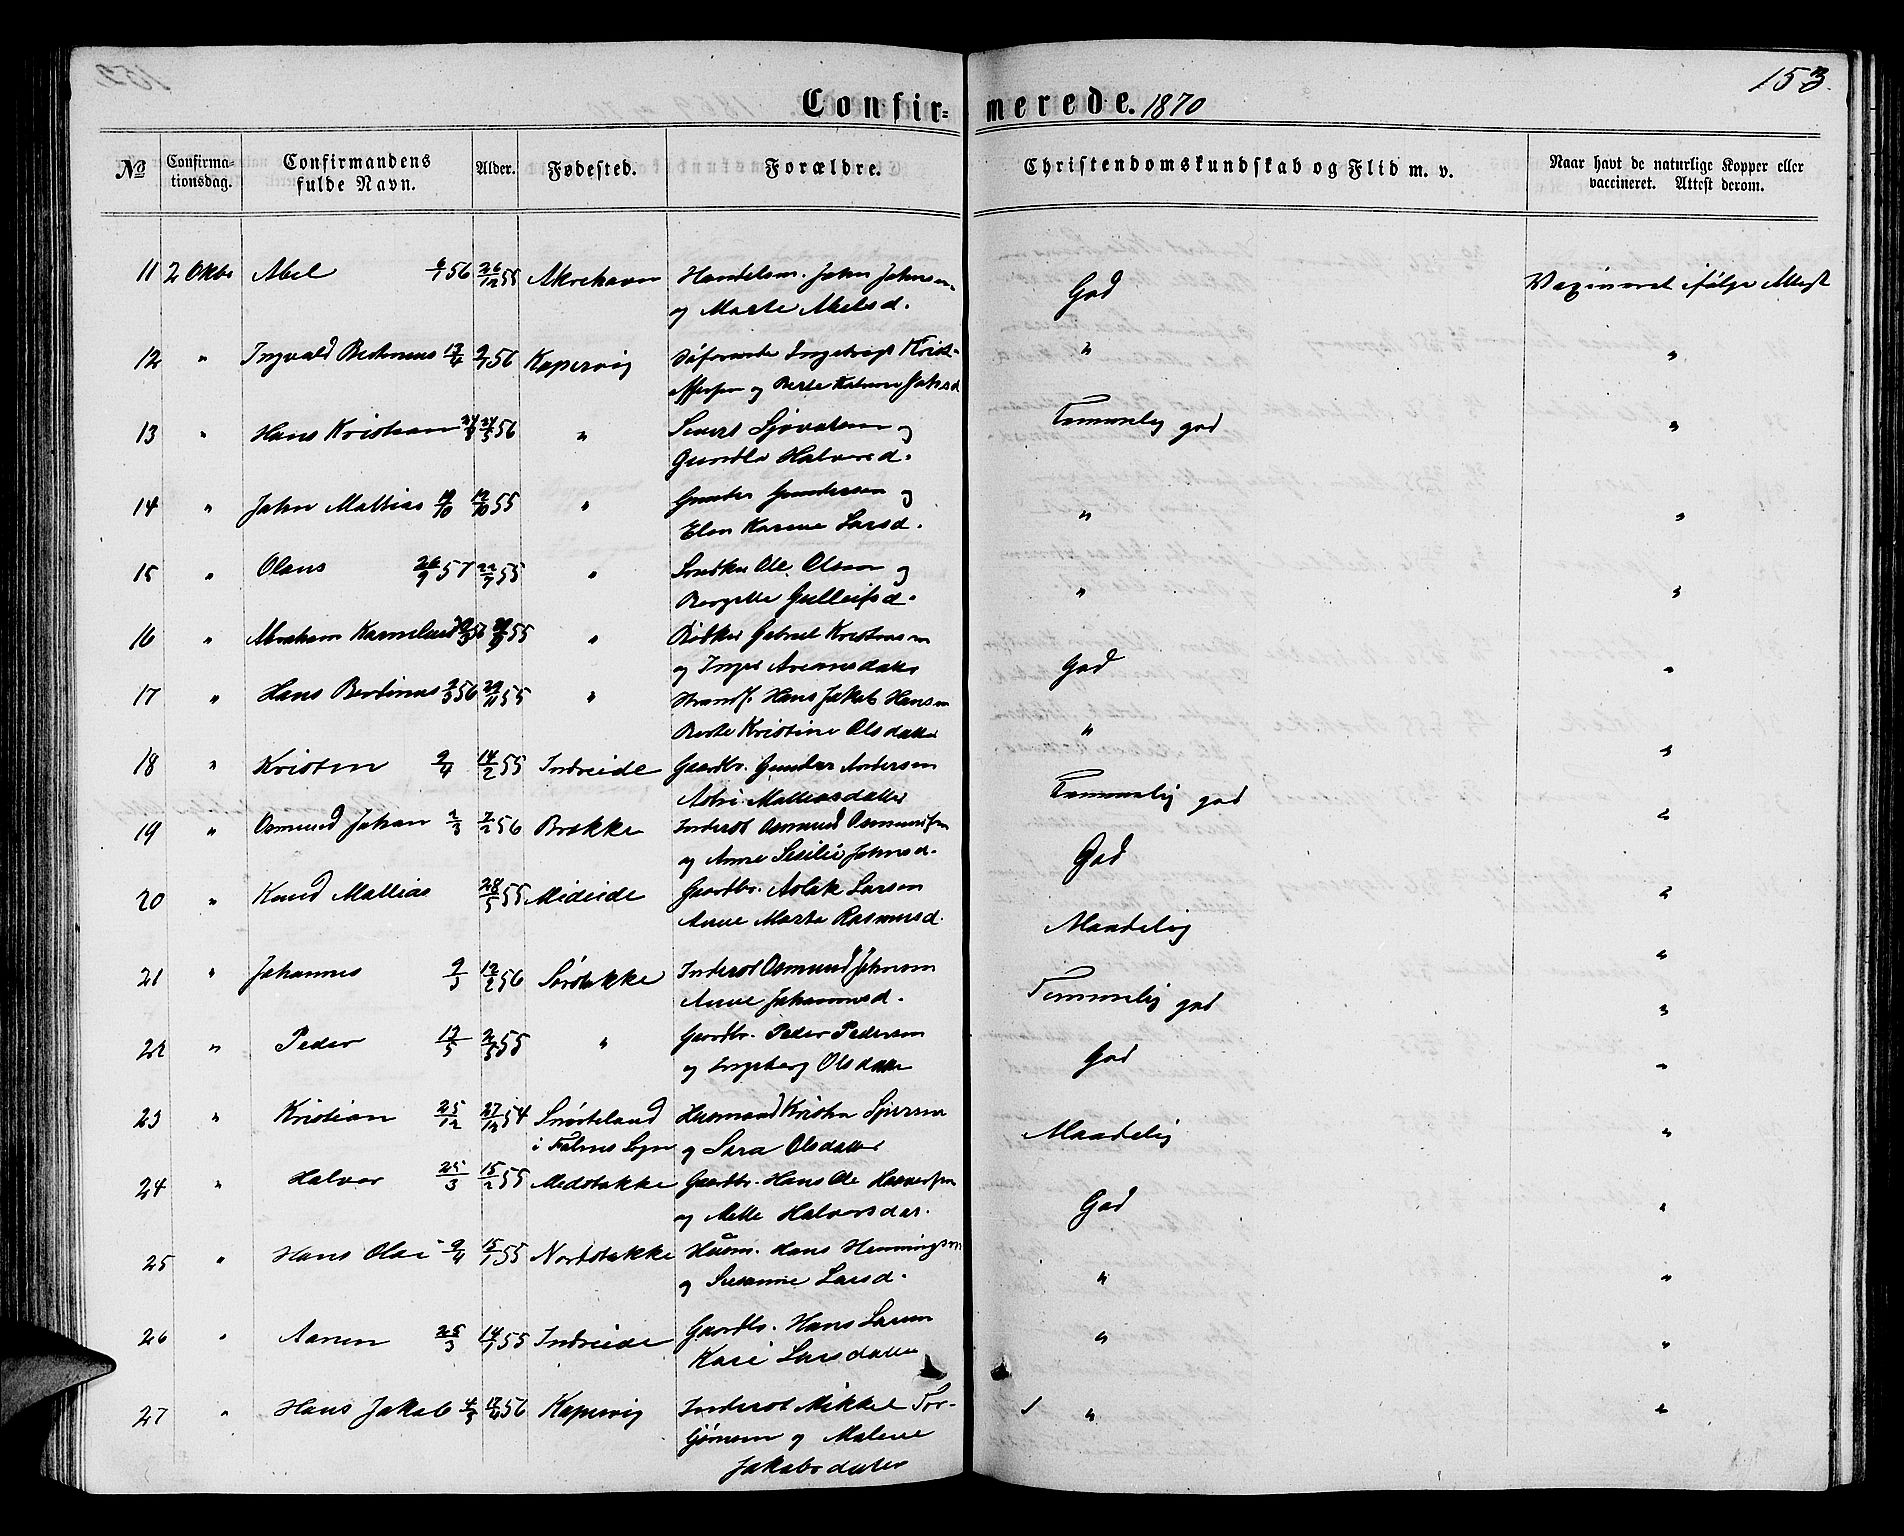 153.
Confir- merede. 1870
No Confirma- tionsdag. Confirmandens fulde Navn. Alder. Fødested. Forældre. Christendomskundskab og Flid m. v. Naar havt de naturlige Kopper eller vaccineret. Attest derom.
11 2 Okbr Abel 6/1 56 26/12 55 Akrehavn Handelsm. John Johnsen God Vaxineret ifølge Attest
og Marte Abelsd.
12 " Ingvald Bertinius 56 Kopervig Ingebrigt Krist- " "
offersen og Berte Johsd
13 " Hans Kristian 56 " Sivert og Temmelig god "
Gurolla Halvorsd.
14 " John Mattias 19/10 12/10 55 " Gunder Gundersen og " "
Elen Karine Larsd.
15 " Olaus 26/9 57 22/9 55 " Ole Olsen og " "
Bergitte Gulleifsd.
16 " Abraham 55 " Bødker Gabriel Kristensen God "
og Inger
17 " Hans Bertinus 2/3 56 29/11 55 " Strandf. Hans Jakob Hansen " "
Berte Kristine Olsdatter
18 " Kristen 9/4 14/2 55 Indreide Gaardbr. Gunder Andersen Temmelig god "
Astri Mattiasdatter
19 " Osmund Johan 2/3 2/2 56 Brekke Inderst Osmund Osmundsen God "
og Anne Sesilie Johnsd.
20 " Knud Mattias 28/5 55 Mideide Gaardbr. Aslak Larsen Maadelig "
Anne Marta Rasmusd.
21 " Johannes 9/3 12/2 56 Sørstokke Inderst Osmund Johnsen Temmelig god "
Anne Johannesd.
22 " Peder 17/5 2/5 55 " Gaardbr. Peder Pedersen God "
og Ingeborg Olsdatter
23 " Kristian 25/12 27/12 54 Snørteland Husmand Kristen Maadelig "
i Falnes Sogn og Sara Olsdatter
24 " Halvor 25/3 15/2 55 Medstokke Gaardbr. Hans Ole God "
og Mette Halvorsdat.
25 " Hans Olai 9/4 15/1 55 Nordstokke Husm. Hans Henningsen " "
og Susanne Larsd.
26 " Aanen 25/3 14/1 55 Indreide Gaardbr. Hans Larsen " "
Kari Larsdatter
27 " Hans Jakob 56 Kopervig Inderst Mikkel Tor- " "
gjønsen og Malene
Jakobsdatter